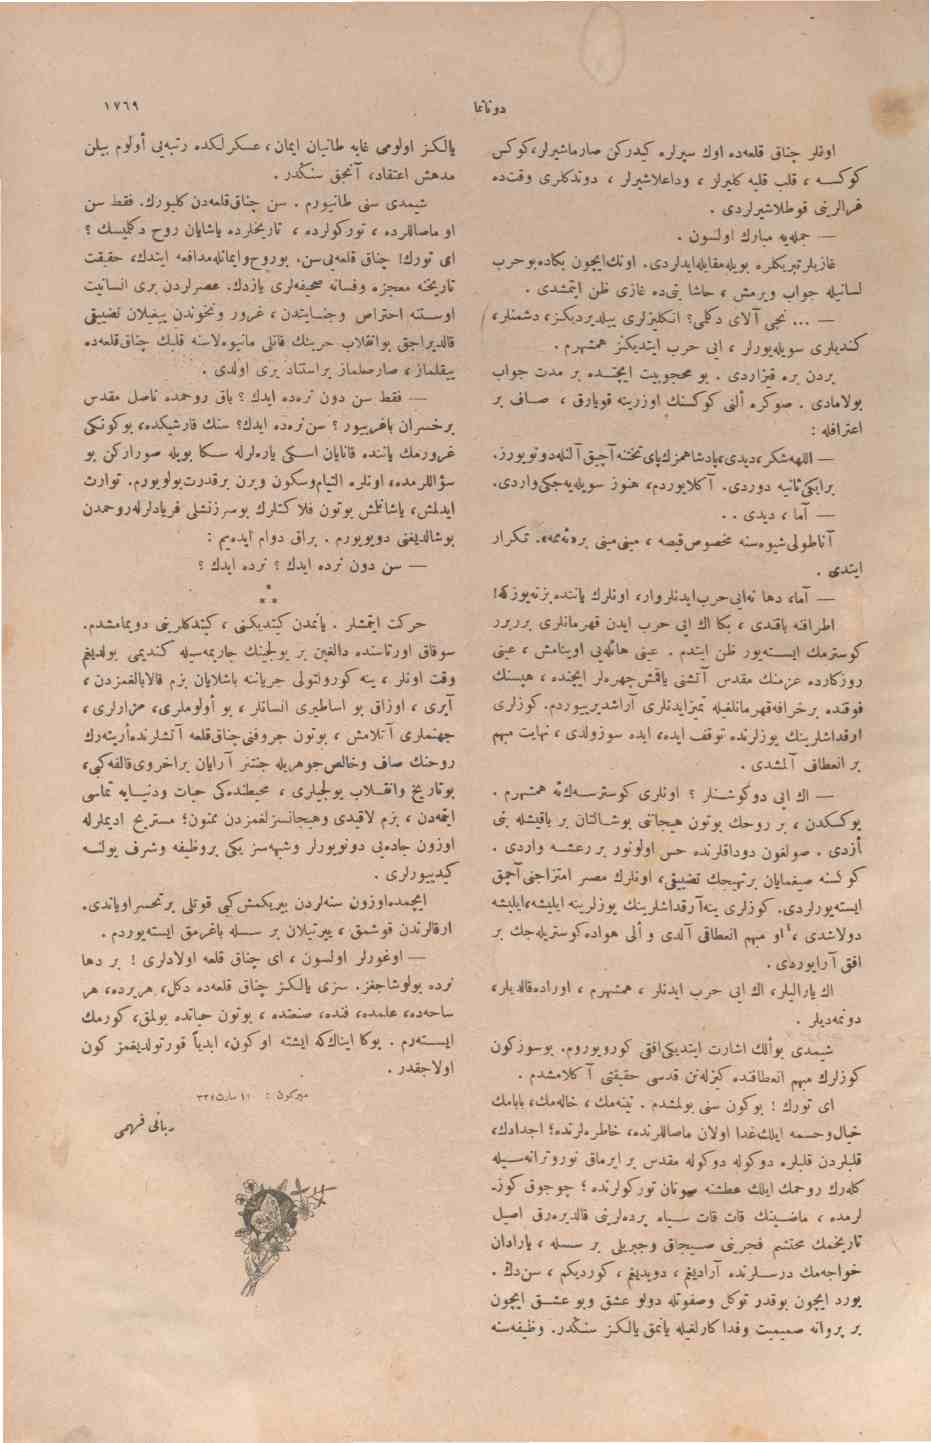 دونانما
١٧٦٩
اونلر چناق قلعه‌ده اوك سپرلره كیدركن صارماشیرلر، كوكس
كوكسه ، قلب قلبه كلیرلر ، وداعلاشیرلر ، دوندكلری وقت‌ده
قوطلاشیرلردی .
— جمله‌یه مبارك اولسون .
غازیلر تبریكلره بویله مقابله ایدلردی. اونك ایچون بكاده بو حرب
لسانیله جواب ویرمش ، حاشا بنی‌ده غازی ظن ایتمشدی .
— ... نجی آلای دكلمی؟ انكلیزلری ییلدیردیكز، دشمنلر،
كندیلری سویله‌یورلر ، ایی حرب ایتدیكنز همشهرم .
بردن بره قیزاردی . بو محجوبیت ایچنده بر مدت جواب
بولامادی . صوكره ألنی كوكسنك اوزرینه قویارق ، صاف بر
اعترافله :
— اللهه شكر، دیدی، پادشاهمزك پای تختنه آچیق آلنله دونویورز.
برایكی ثانیه دوردی. آكلایوردم، هنوز سویله‌یه‌جكی واردی.
— آما ، دیدی . .
آناطولی شیوه‌سنه مخصوص قیصه ، مینی مینی بر «نه‌مه»، تكرار
ایتدی .
— آما، دها نه‌ایی حرب ایدنلر وار، اونلرك یاننده بزنه‌یوزكه!
اطرافنه باقندی ، بكا اك ایی حرب ایدن قهرمانلری بررر برر
كوسترمك ایسته‌یور ظن ایتدم . عینی هائله‌یی اوینامش ، عینی
روزكارده عزمنك مقدس آتشنی یاقمش چهره‌لر ایچنده ، هپسنك
فوقنده بر خرافه قهرمانلغیله تمیز ایدنلری آراشدیرییوردم. كوزلری
ارقداشلرینك یوزلرنده توقف ایده، ایده سوزولدی ، نهایت مبهم
بر انعطاف آلمشدی .
— اك ایی دوكوشنلر ؟ اونلری كوسترسه‌ك‌ئه همشهرم .
یوكسكدن ، بر روحك بوتون هیجاننی بوشالتان بر باقیشله بنی
أزدی . صولغون دوداقلرنده حس اولونور بر رعشه واردی .
كوكسنه صیغمایان بر تهیجك تضییقی، اونلرك مصر امتزاجنی آچمق
ایسته‌یورلردی. كوزلری ینه آرقداشلرینك یوزلرینه ایلیشه، ایلیشه
دولاشدی ، او مبهم انعطافی آلدی و ألی هواده كوستریله‌جك بر
افق آرایوردی .
اك یارالیلر، اك ایی حرب ایدنلر ، همشهرم ، اوراده قالدیلر،
دونمه‌دیلر .
شیمدی بو ألك اشارت ایتدیكی افقی كورویوروم. بوسوزكون
كوزلرك مبهم انعطافنده كیزله‌نن قدسی حقیقتی آكلامشدم .
ای تورك ! بوكون سنی بولمشدم . نینه‌مك ، خاله‌مك، بابامك
خیال وحسمه ایلك غدا اولان ماصاللرنده، خاطره‌لرنده؛ اجدادك،
قلبلردن قلبلره دوكوله دوكوله مقدس بر ایرماق نوروترانه‌سیله
كله‌رك روحمك ایلك عطشنه صونان توركولرنده ؛ چوجوق كوز-
لرمده ، ماضینك قات قات سیاه پرده‌لرینی قالدیره‌رق اصیل
تاریخمك محتشم فجرینی صیجاق وجبریلی بر سسله ، یارادان
خواجه‌مك درسلرنده آرادیغم ، دویدیغم ، كوردیكم ، سن‌دك .
یورد ایچون بوقدر توكل وصفوتله دولو عشق وبو عشق ایچون
بر پروانه صمیمیت وفداكارلغیله یانمق یالكز سنكدر. وظیفه‌سنه
یالكز اولومی غایه طانیان ایمان، عسكرلكده رتبه‌یی أولوم بیلن
مدهش اعتقاد، آنجق سنكدر .
شیمدی سنی طانیورم . سن چناق قلعه‌دن كلیورك. فقط سن
او ماصاللرده ، توركولرده ، تاریخلرده یاشایان روح دكلمیسك ؟
ای تورك! چناق قلعه‌یی سن. بوروح وایمانله مدافعه ایتدك، حقیقت
تاریخنه معجزه وفسانه صحیفه‌لری یازدك. عصرلردن بری انسانیت
اوستنه احتراص وجنایتدن ، غرور ونخوتدن ییغیلان تضییقی
قالدیراجق بوانقلاب حربنك قانلی مانیوه‌لاسنه قلبك چناق‌قلعه‌ده
ییقلماز ، صارصلماز بر استناد یری اولدی .
— فقط سن دون نره‌ده ایدك ؟ باق روحمده ناصل مقدس
برخسران باغرییور ؟ سن نره‌ده ایدك؟ سنك قارشیكده، بوكونكی
غرورمك یاننده قانایان اسكی یاره‌لرله سكا بویله صوراركن بو
سؤاللرمده، اونلره التیام‌وسكون ویرن برقدرت بولویورم. توارث
ایدلمش، یاشانلمش بوتون فلاكتلرك بوسرزنشلی فریادلرله روحمدن
بوشالدیغنی دویویورم . براق دوام ایده‌یم :
— سن دون نرده ایدك ؟ نرده ایدك ؟
*
* *
حركت ایتمشلر . یانمدن كیتدیكنی ، كیتدكلرینی دویمامشدم.
سوقاق اورتاسنده دالغین بر یولجینك چارپمه‌سیله كندیمی بولدیغم
وقت اونلر ، ینه كورولتولی جریاننه باشلایان بزم قالابالغمزدن ،
آیری ، اوزاق بو اساطیری انسانلر ، بو أولوملری، مزارلری،
جهنملری آتلامش ، بوتون جروفنی چناق قلعه آتشلرنده أریته‌رك
روحنك صاف وخالص جوهریله جنتلر آرایان براخروی قافله كبی،
بوتاریخ وانقلاب یولجیلری ، محیطنده‌كی حیات ودنیایه تماسی
ایتمه‌دن ، بزم لاقیدی وهیجانسزلغمزدن ممنون؛ مستریح ادیملرله
اوزون جاده‌یی دونویورلر وشبهه‌سز یكی بر وظیفه وشرف یولنه
كیدییورلردی .
ایچمده اوزون سنه‌لردن بیریكمش كبی قوتلی بر تحسر اویاندی.
ارقالرندن قوشمق ، ییرتیلان بر سسله باغرمق ایسته‌یوردم .
— اوغورلر اولسون ، ای چناق قلعه اولادلری ! بر دها
نرده بولوشاجغز. سزی یالكز چناق قلعه‌ده دكل، هریرده، هر
ساحه‌ده، علمده، فنده، صنعتده ، بوتون حیاتده بولمق، كورمك
ایسته‌رم . بوكا اینانك‌كه ایشته اوكون، ابدیاً قورتولدیغمز كون
اولاجقدر .
میركون : ١١ مارت ٣٣٢
ربانی فهمی